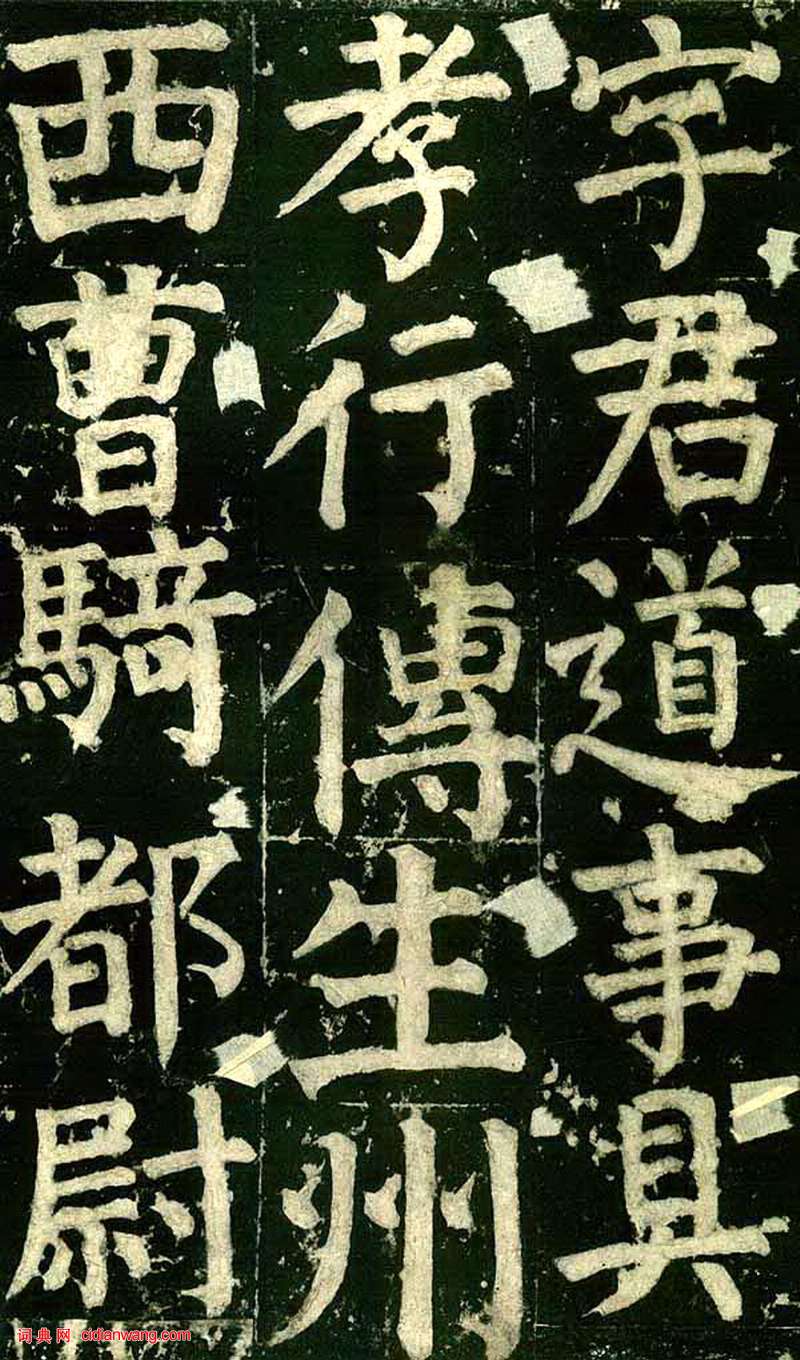 字君道事具
孝行傳生州
西曹騎都尉
词典网 cidianwang.com